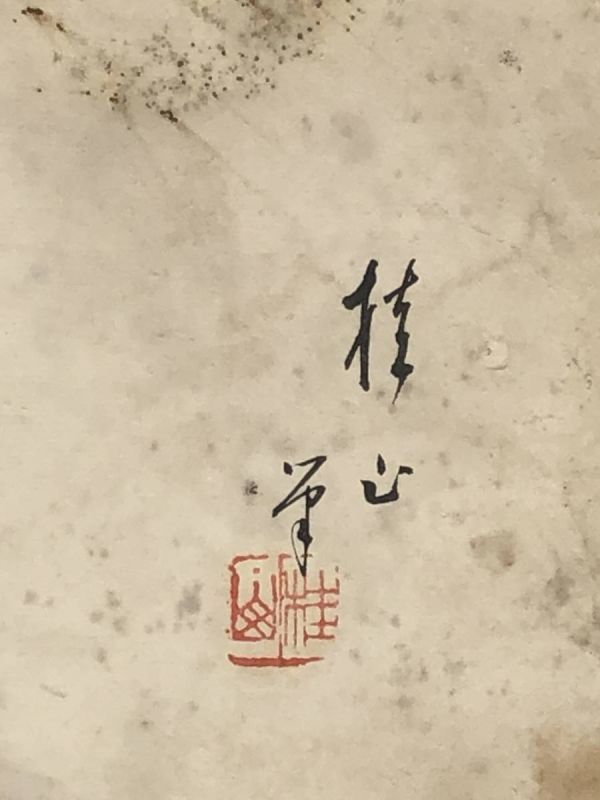 桂山
筆
桂